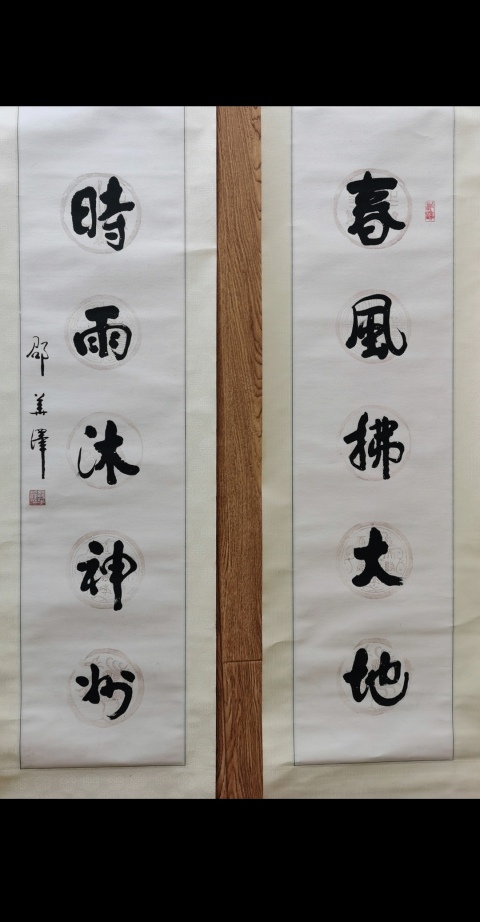 春風拂大地
時雨沐神州
邵華澤